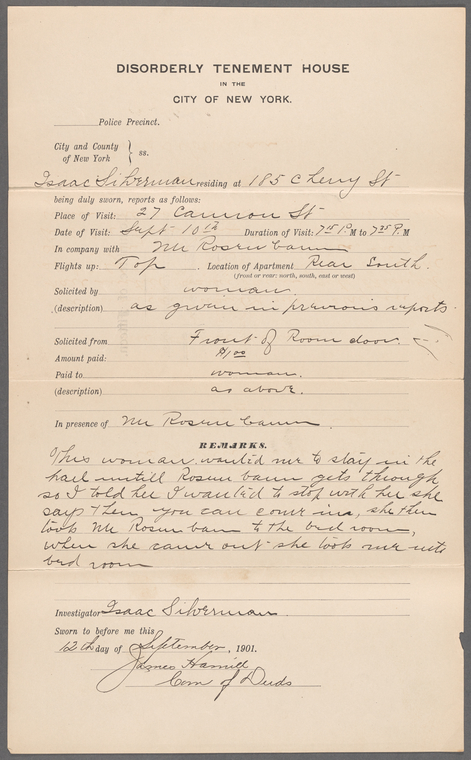 DISORDERLY TENEMENT HOUSE
IN THE
CITY OF NEW YORK.
Police Precinct.
City and County
of New York } ss.
Isaac Silverman residing at 185 Cherry St
being duly sworn, reports as follows:
Place of Visit: 27 Cannon St
Date of Visit: Sept 10th Duration of Visit: 7 15 P M to 7 35 P. M
In company with Mr Rosenbaum
Flights up: Top. Location of Apartment Rear South.
(front or rear: north, south, east or west)
Solicited by woman
(description) as given in previous reports.
Solicited from Front of Room door.
Amount paid: $1.00
Paid to woman.
(description) as above.
In presence of Mr Rosenbaum.
REMARKS.
This woman wanted me to stay in the
hall untill Rosenbaum gets through
so I told her I wanted to stop with her she
says then you can come in, she then
took Mr Rosenbaum to the bed room,
when she came out she took me into
bed room
Investigator Isaac Silverman.
Sworn to before me this
12th day of September, 1901.
James Hamill
Com of Deeds